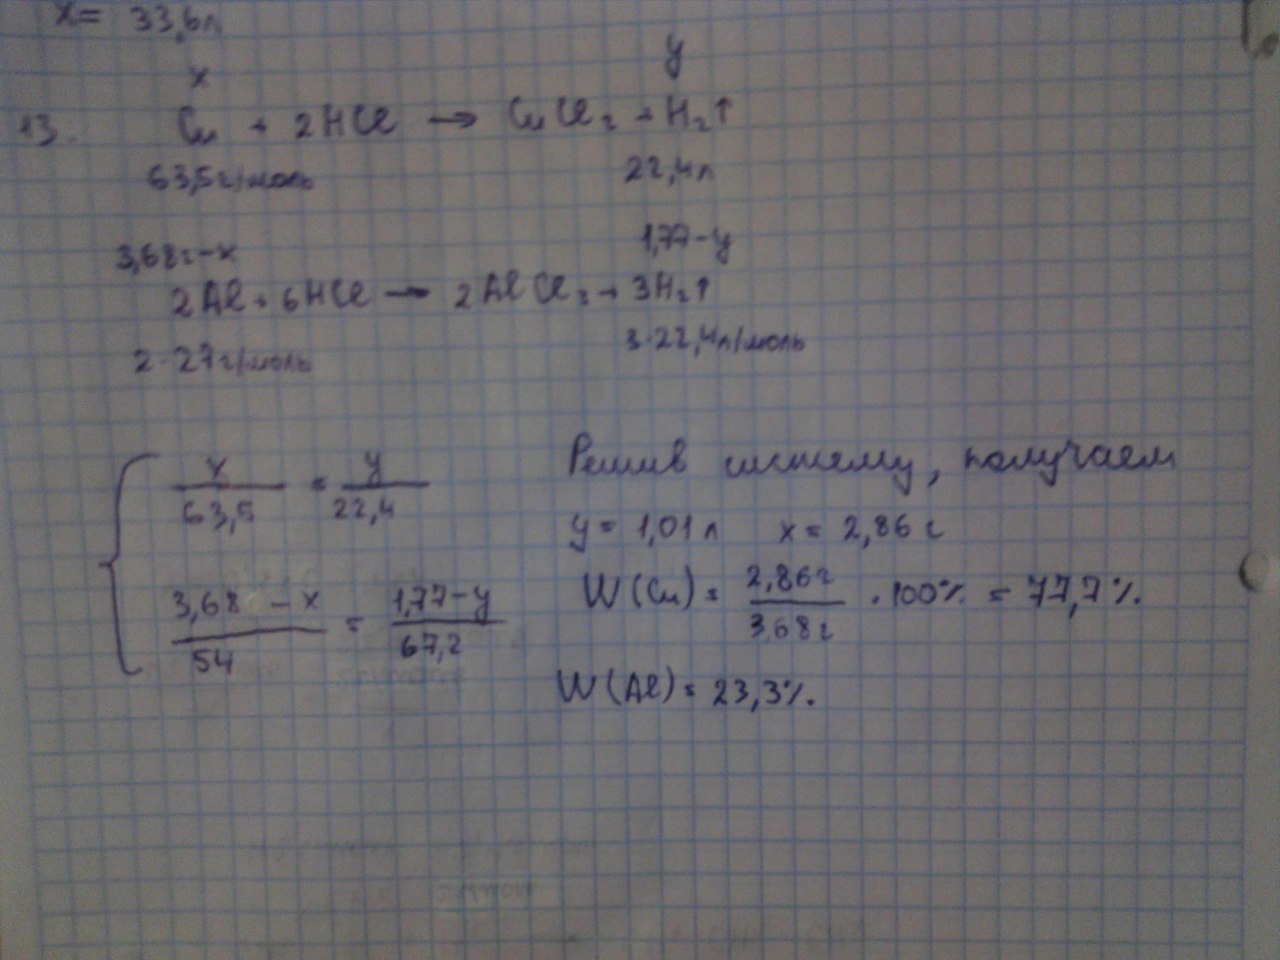 x = 33,6л
x y
13. Cu + 2HCl → CuCl₂ + H₂↑
63,5г/моль 22,4л
3,68г-x 1,77-y
2Al + 6HCl → 2AlCl₃ + 3H₂↑
2·27г/моль 3·22,4л/моль
x/63,5 = y/22,4
3,68 - x/54 = 1,77-y/67,2
Решив систему, получаем
y = 1,01л x = 2,86г
W(Cu) = 2,86г/3,68г · 100% = 77,7%.
W(Al) = 23,3%.